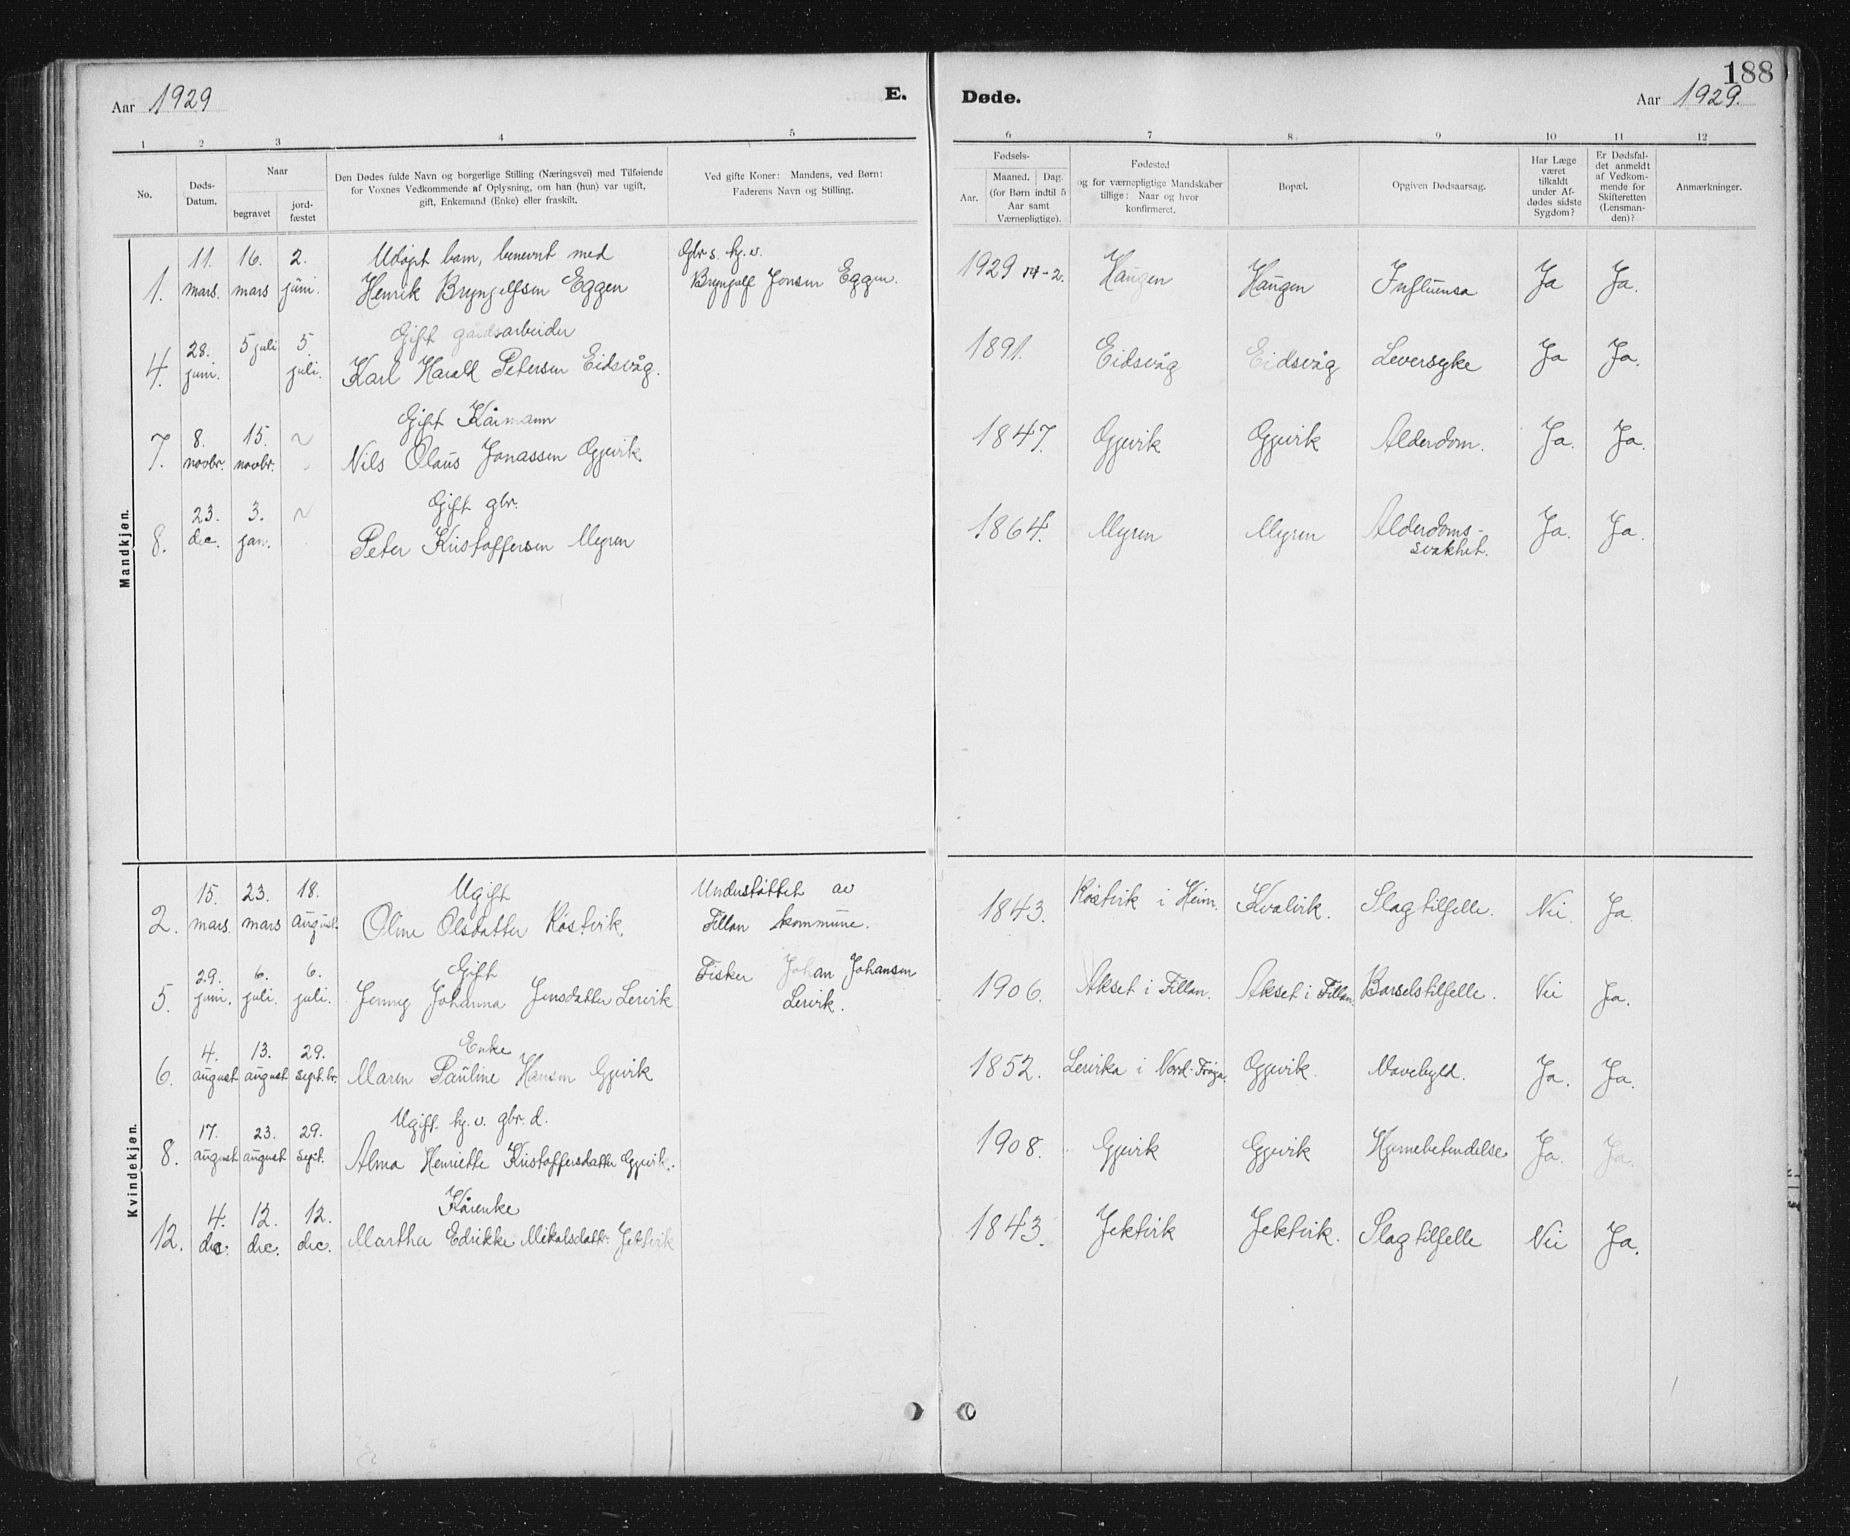 188
Aar 1929 E. Døde. Aar 1929.
1 2 3 4 5 6 7 8 9 10 11 12
No.
Døds-
Datum.
Naar
begravet
jord-
fæstet
Den Dødes fulde Navn og borgerlige Stilling (Næringsvei) med Tilføiende
for Voxnes Vedkommende af Oplysning, om han (hun) var ugift,
gift, Enkemand (Enke) eller fraskilt.
Ved gifte Koner: Mandens, ved Børn:
Faderens Navn og Stilling.
Fødsels-
Aar.
Maaned. Dag.
(for Børn indtil 5
Aar samt
Værnepligtige).
Fødested
og for værnepligtige Mandskaber
tillige: Naar og hvor
konfirmeret.
Bopæl.
Opgiven Dødsaarsag.
Har Læge
været
tilkaldt
under Af-
dødes sidste
Sygdom?
Er Dødsfal-
det anmeldt
af Vedkom-
mende for
Skifteretten
(Lensman-
den)?
Anmærkninger.
Mandkjøn.
11. 16. 2. Udøpt barn, benevnt med Gbr s. kj. v.
1. mars. mars juni. Henrik Brynjelfsen Eggen Brynjelf Jonsen Eggen. 1929 14-2. Haugen Haugen Influensa Ja Ja.
28. 5 juli 5. Gift gårdsarbeider
4. juni. juli. Karl Harald Petersen Eidsvåg. 1891. Eidsvåg Eidsvåg Leversyke Ja Ja.
8. 15. ~ Gift Kårmann
7. novbr. novbr. Nils Olaus Jonassen Gjevik. 1847. Gjevik Gjevik Alderdom. Ja. Ja.
23. 3. ~ Gift gbr.
8. dec. jan. Peter Kristoffersen Myren 1864. Myren Myren Alderdoms-
svakhet. Ja. Ja.
Kvindekjøn.
15. 23. 18. Ugift Understøttet av
2. mars. mars august. Oline Olsdatter Røstvik. Fillan kommune. 1843. Røstvik i Heim. Kvalvik. Slagtilfelle. Nei. Ja.
29. 6. 6. Gift Fisker Johan Johansen
5. juni. juli. juli. Jenny Johanna Jensdatter Lervik Lervik. 1906. Akset i Fillan. Akset i Fillan Barselstilfelle. Nei Ja.
4. 13. 29. Enke
6. august august septbr. Maren Pauline Hansen Gjevik 1852. Lervika i Nord-Frøya. Gjevik. Mavebyld. Ja. Ja.
17. 23. 29. Ugift kj. v. gbr. d.
8. august august sept. Alma Henriette Kristoffersdatter Gjevik. 1908. Gjevik Gjevik Hjernebetendelse Ja. Ja.
4. 12. 12. Kårenke
12. dec. dec. dec. Martha Edrikke Mikalsdattr. Jektvik 1843. Jektvik Jektvik. Slagtilfelle Nei Ja.